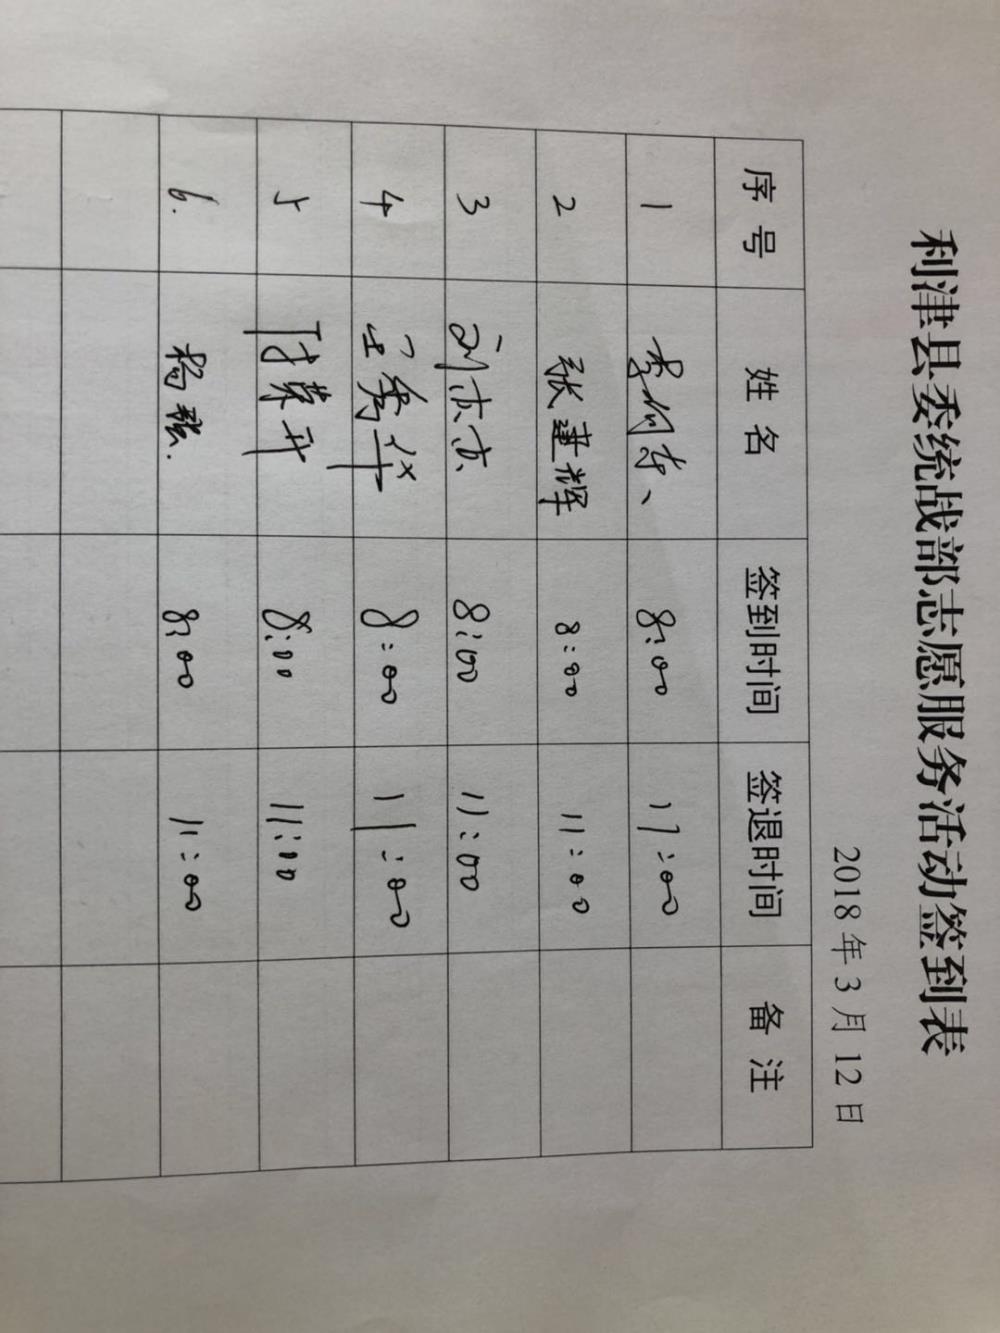 利津县委统战部志愿服务活动签到表
2018年3月12日
序号 姓名 签到时间 签退时间 备注
1 8:00 11:00
2 张建辉 8:00 11:00
3 8:00 11:00
4 8:00 11:00
5 8:00 11:00
6. 杨 8:00 11:00